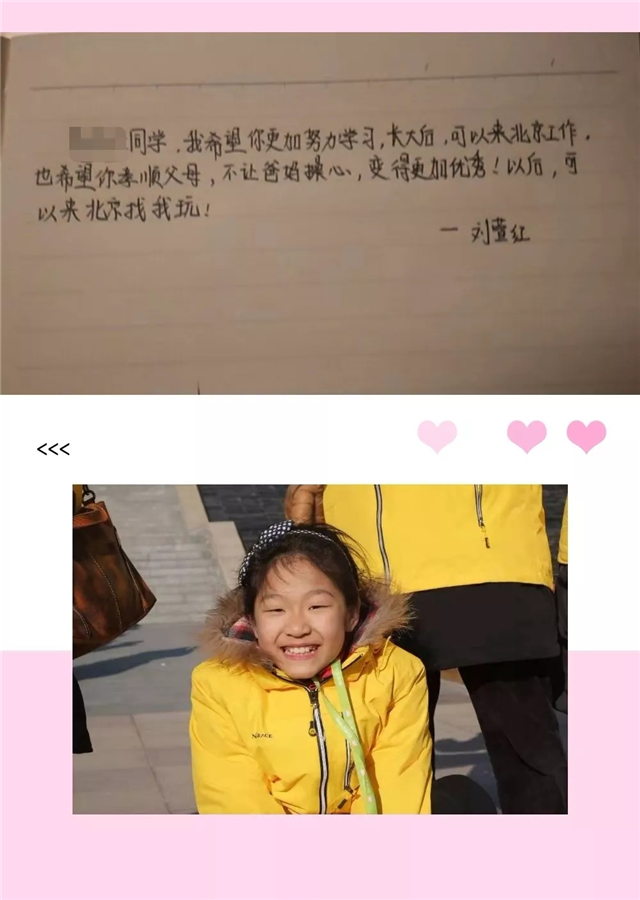 同学，我希望你更加努力学习，长大后，可以来北京工作，
也希望你孝顺父母，不让爸妈操心，变得更加优秀！以后，可
以来北京找我玩！
— 刘萱红
<<<